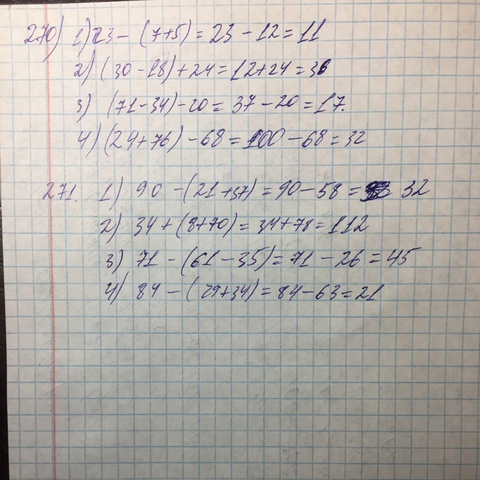 270) 1) 23 - (7+5) = 23 - 12 = 11
2) (30 - 18) + 24 = 12 + 24 = 36
3) (71 - 34) - 20 = 37 - 20 = 17.
4) (24 + 76) - 68 = 100 - 68 = 32
271. 1) 90 - (21 + 37) = 90 - 58 = 32
2) 34 + (8 + 70) = 34 + 78 = 112
3) 71 - (61 - 35) = 71 - 26 = 45
4) 84 - (29 + 34) = 84 - 63 = 21